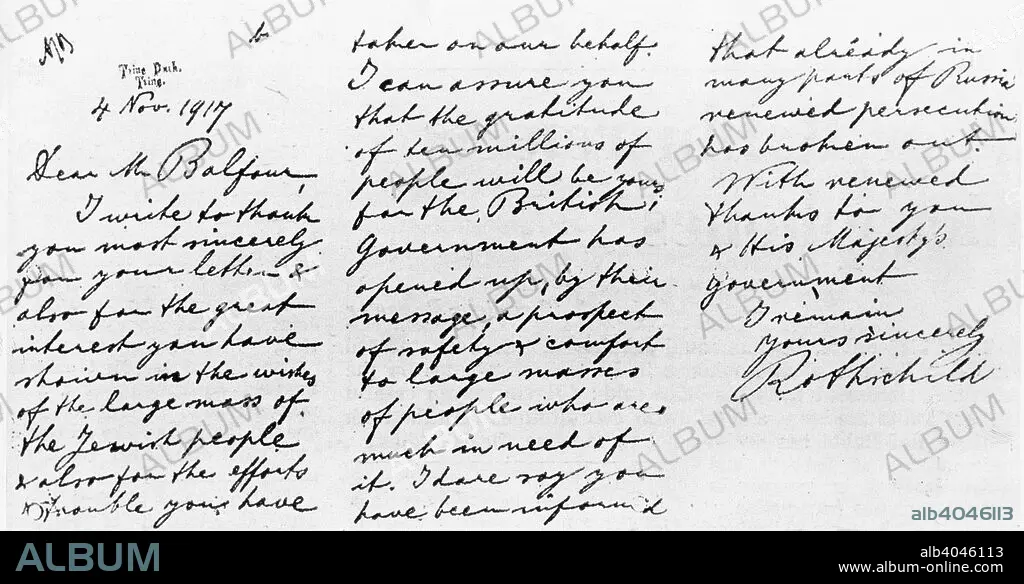 Tring Park.
Tring.
4 Nov. 1917
Dear Mr Balfour,
I write to thank
you most sincerely
for your letter &
also for the great
interest you have
shown in the wishes
of the large mass of
the Jewish people
& also for the efforts
& trouble you have
taken on our behalf.
I can assure you
that the gratitude
of ten millions of
people will be yours
for the British
Government has
opened up, by their
message, a prospect
of safety & comfort
to large masses
of people who are
much in need of
it. I dare say you
have been informed
that already in
many parts of Russia
renewed persecution
has broken out.
With renewed
thanks to you
& His Majesty's
Government
I remain
yours sincerely
Rothschild
ALBUM
alb4046113
ALBUM
alb4046113
www.album-online.com